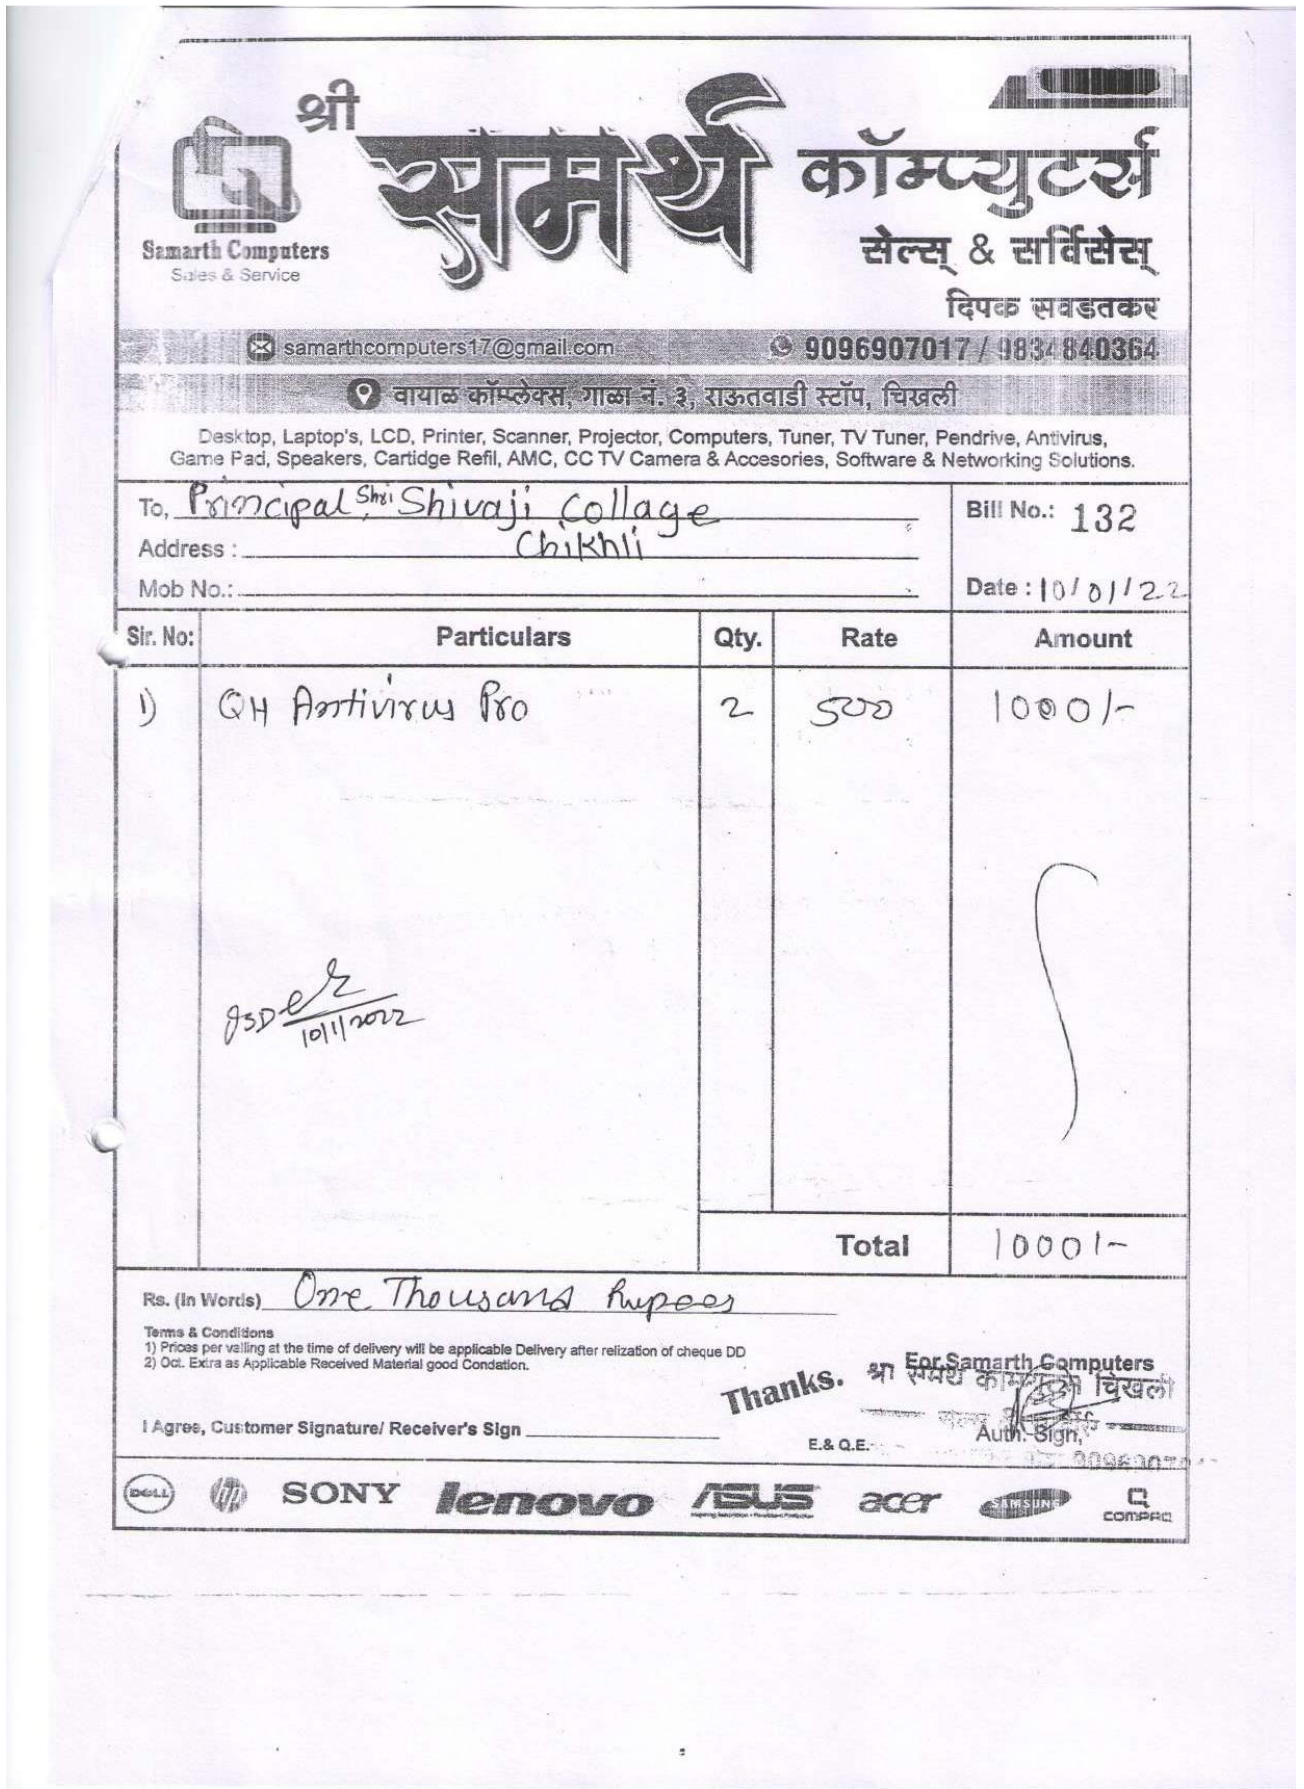 श्री समर्थ कॉम्प्युटर्स
Samarth Computers
Sales & Service
सेल्स् & सर्विसेस्
दिपक सवडतकर
samarthcomputers17@gmail.com 9096907017 / 9834840364
वायाळ कॉम्प्लेक्स, गाळा नं. ३, राऊतवाडी स्टॉप, चिखली
Desktop, Laptop's, LCD, Printer, Scanner, Projector, Computers, Tuner, TV Tuner, Pendrive, Antivirus,
Game Pad, Speakers, Cartidge Refil, AMC, CC TV Camera & Accesories, Software & Networking Solutions.
To, Principal, Shri Shivaji Collage
Bill No.: 132
Address : Chikhli
Mob No.:
Date : 10/01/22
Sir. No: Particulars Qty. Rate Amount
1) QH Antivirus Pro 2 500 1000/-
10/1/2022
Total 1000/-
Rs. (In Words) One Thousand Rupees
Terms & Conditions
1) Prices per vailing at the time of delivery will be applicable Delivery after relization of cheque DD
2) Oct. Extra as Applicable Received Material good Condation.
Thanks.
For Samarth Computers
श्री समर्थ कॉम्प्युटर्स चिखली
I Agree, Customer Signature/ Receiver's Sign
E.& Q.E.
Auth. Sign,
DELL hp SONY lenovo ASUS acer SAMSUNG COMPAQ